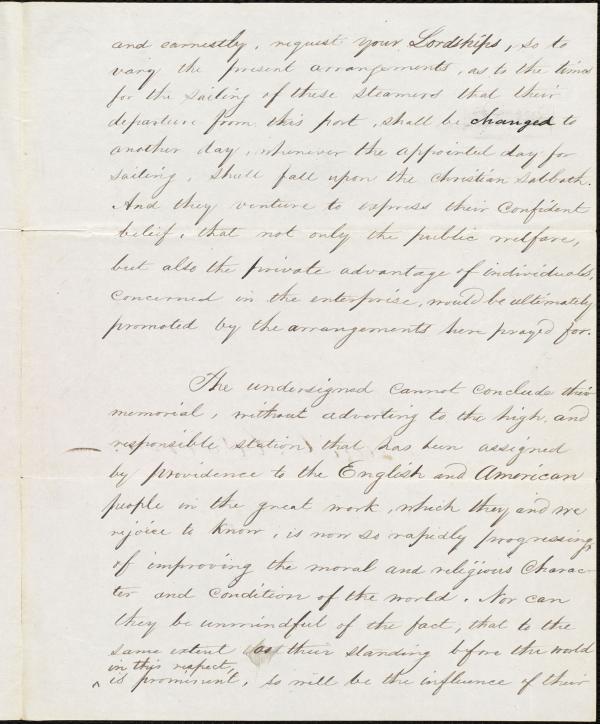 and earnestly, request your Lordships, so to
vary the present arrangements, as to the times
for the sailing of these steamers that their
departure from this port, shall be changed to
another day, whenever the appointed day for
sailing, shall fall upon the Christian Sabbath.
And they venture to express their confident
belief, that not only the public welfare,
but also the private advantage of individuals,
concerned in the enterprise, would be ultimately
promoted by the arrangements here prayed for.
The undersigned cannot conclude their
memorial, without adverting to the high and
responsible station that has been assigned
by providence to the English and American
people in the great work, which they and we
rejoice to know, is now so rapidly progressing,
of improving the moral and religious Charac-
ter and Condition of the world. Nor can
they be unmindful of the fact, that to the
same extent as their standing before the world
in this respect,
^ is prominent, so will be the influence of their